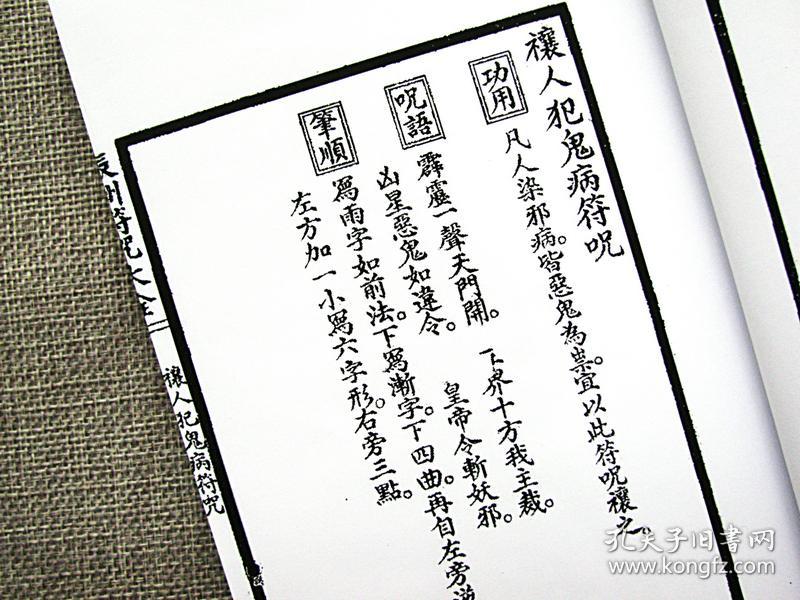 禳人犯鬼病符呪
功用
凡人染邪病。皆惡鬼為祟。宜以此符呪禳之。
呪語
霹靂一聲天門開。下界十方我主裁。
凶星惡鬼如違令。皇帝令斬妖邪。
筆順
寫雨字如前法。下寫漸字。下四曲。再自左旁
左方加一小寫六字形。右旁三點。
辰州符咒大全
禳人犯鬼病符呪
孔夫子旧书网
www.kongfz.com